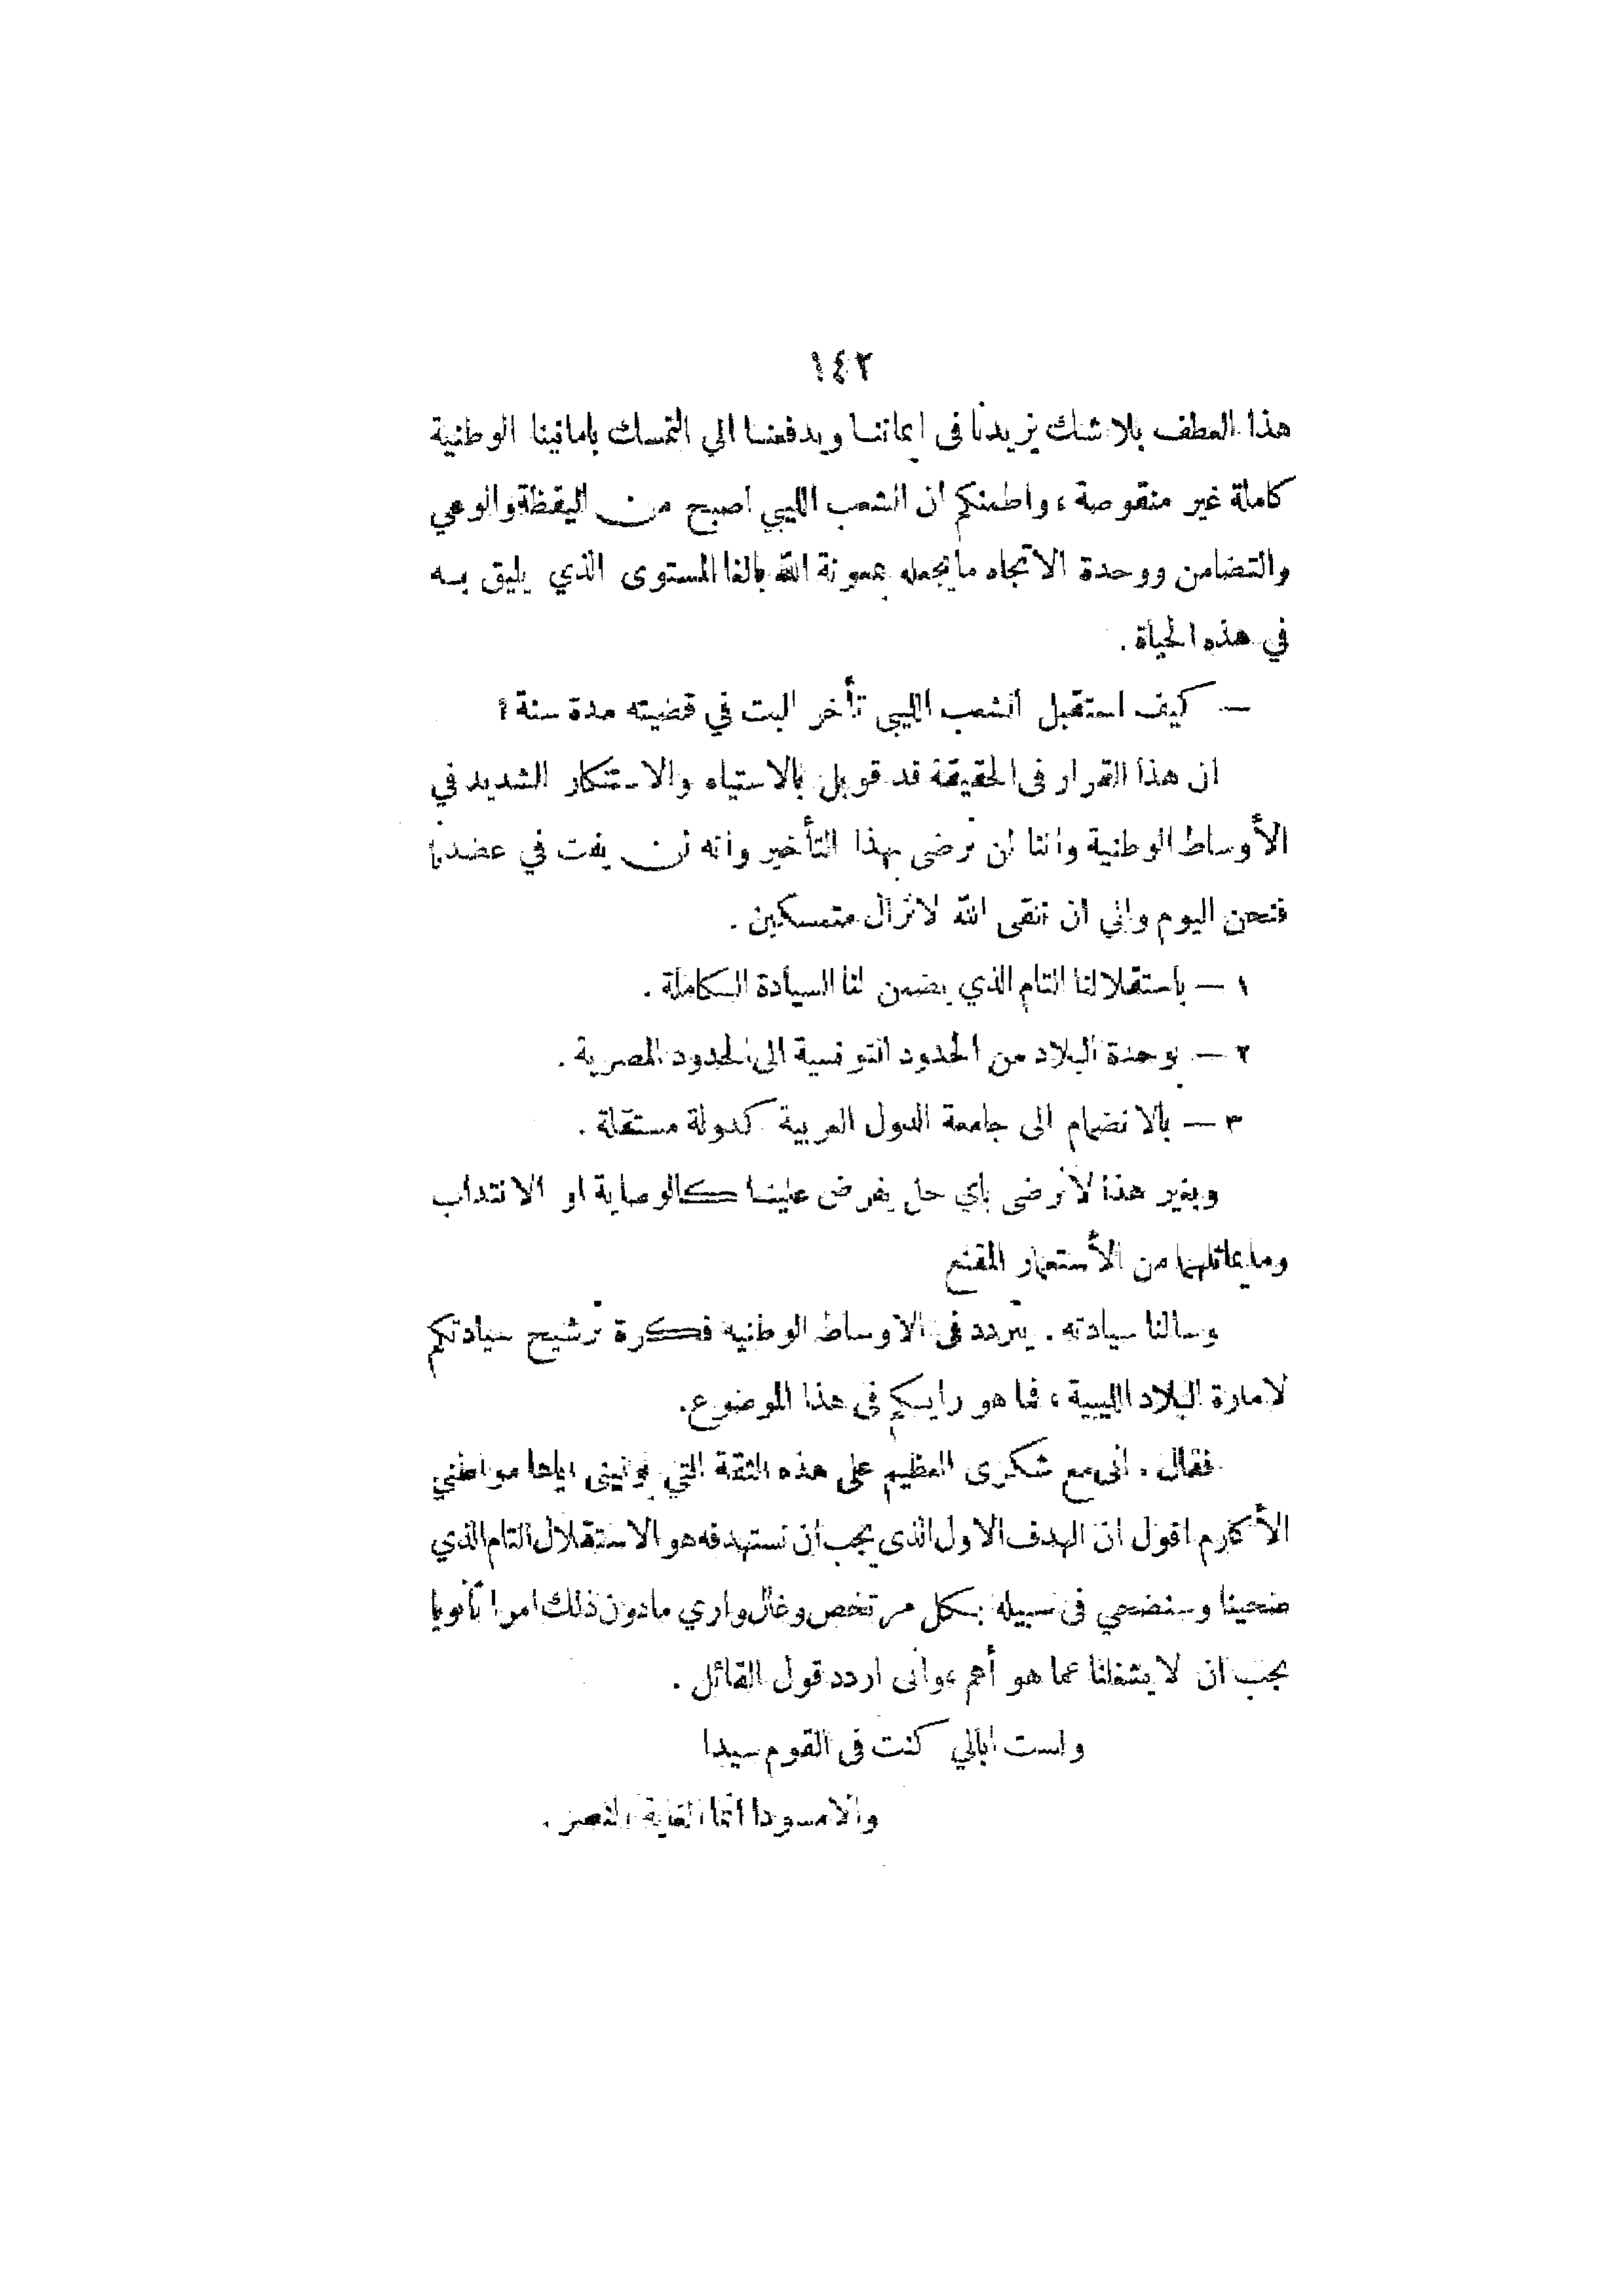 ١٤٢
هذا العطف بلا شك يزيدنا فى ايماننا ويدفعنا الي التمسك بامانينا الوطنية
كاملة غير منقوصة ، واطمنكم ان الشعب الليبي اصبح من اليقظة والوعي
والتضامن ووحدة الاتجاه ما يجعله بمعونة الله بالغا المستوى الذي يليق به
في هذه الحياة .
— كيف استقبل الشعب الليبى تأخر البت في قضيته مدة سنة ؟
ان هذا القرار فى الحقيقة قد قوبل بالاستياه والاستنكار الشديد في
الأوساط الوطنية واننا لن نرضى بهذا التأخير وانه لن يفت في عضدنا
فنحن اليوم والي ان نلقى الله لا نزال متمسكين .
١ — باستقلالنا التام الذي يضمن لنا السيادة الكاملة .
٢ — بوحدة البلاد من الحدود التونسية الى الحدود المصرية .
٣ — بالانضمام الى جامعة الدول العربية كدولة مستقلة .
وبغير هذا لا نرضى باي حل يفرض علينا كالوصاية او الانتداب
وما يماثلهما من الأستعمار المقنع
وسالنا سيادته . يتردد فى الاوساط الوطنيه فكرة ترشيح سيادتكم
لامارة البلاد الليبية ، فما هو رايكم فى هذا الموضوع.
فقال . انى مع شكرى العظيم على هذه الثقة التي يولينى اياها مواطني
الأكارم اقول ان الهدف الاول الذى يجب ان نستهدفه هو الاستقلال التام الذي
ضحينا وسنضحي فى سبيله بكل مرتخص وغال واري مادون ذلك امرا ثانويا
يجب ان لا يشغلنا عما هو أهم ، وانى اردد قول القائل .
ولست ابالي كنت فى القوم سيدا
والا مسودا انما الغاية النصر .